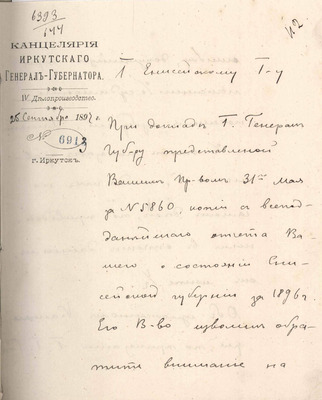 6393
144
112
КАНЦЕЛЯРІЯ
ИРКУТСКАГО
ГЕНЕРАЛЪ-ГУБЕРНАТОРА.
IV. Дѣлопроизводство.
25 Сентября 1897 г.
№ 6913
г. Иркутскъ.
Г. Енисейскому Г-у
При докладѣ Г. Генералъ
Губ-ру представленной
Вашимъ Пр-вомъ 31го Мая
за № 5860, копіи съ всепод-
даннѣйшаго отчета Ва-
шего о состояніи Ени-
сейской губерніи за 1896 г.
Его В-во изволилъ обра-
тить вниманіе на